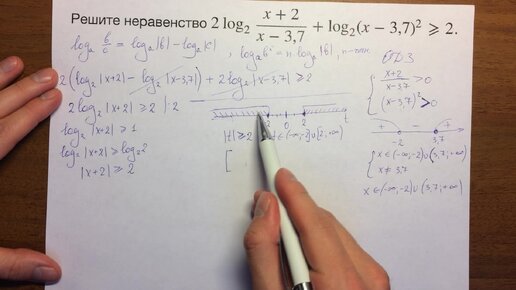 Решите неравенство 2 log₂ (x + 2)/(x − 3,7) + log₂(x − 3,7)² ⩾ 2.
log₂ b/c = log₂|b| − log₂|c| , log₂bⁿ = n·log₂|b|, n-чет.
2(log₂|x+2| − log₂|x−3,7|) + 2log₂|x−3,7| ≥ 2
2log₂|x+2| ≥ 2 |:2
log₂|x+2| ≥ 1
log₂|x+2| ≥ log₂2
|x+2| ≥ 2
0 2 t
|t| ≥ 2 t∈(-∞;-2]∪[2;+∞)
[
ОДЗ
{ (x+2)/(x−3,7) > 0
(x−3,7)² > 0
+ − +
-2 3,7
{ x∈(-∞;-2)∪(3,7;+∞)
x ≠ 3,7
x∈(-∞;-2)∪(3,7;+∞)